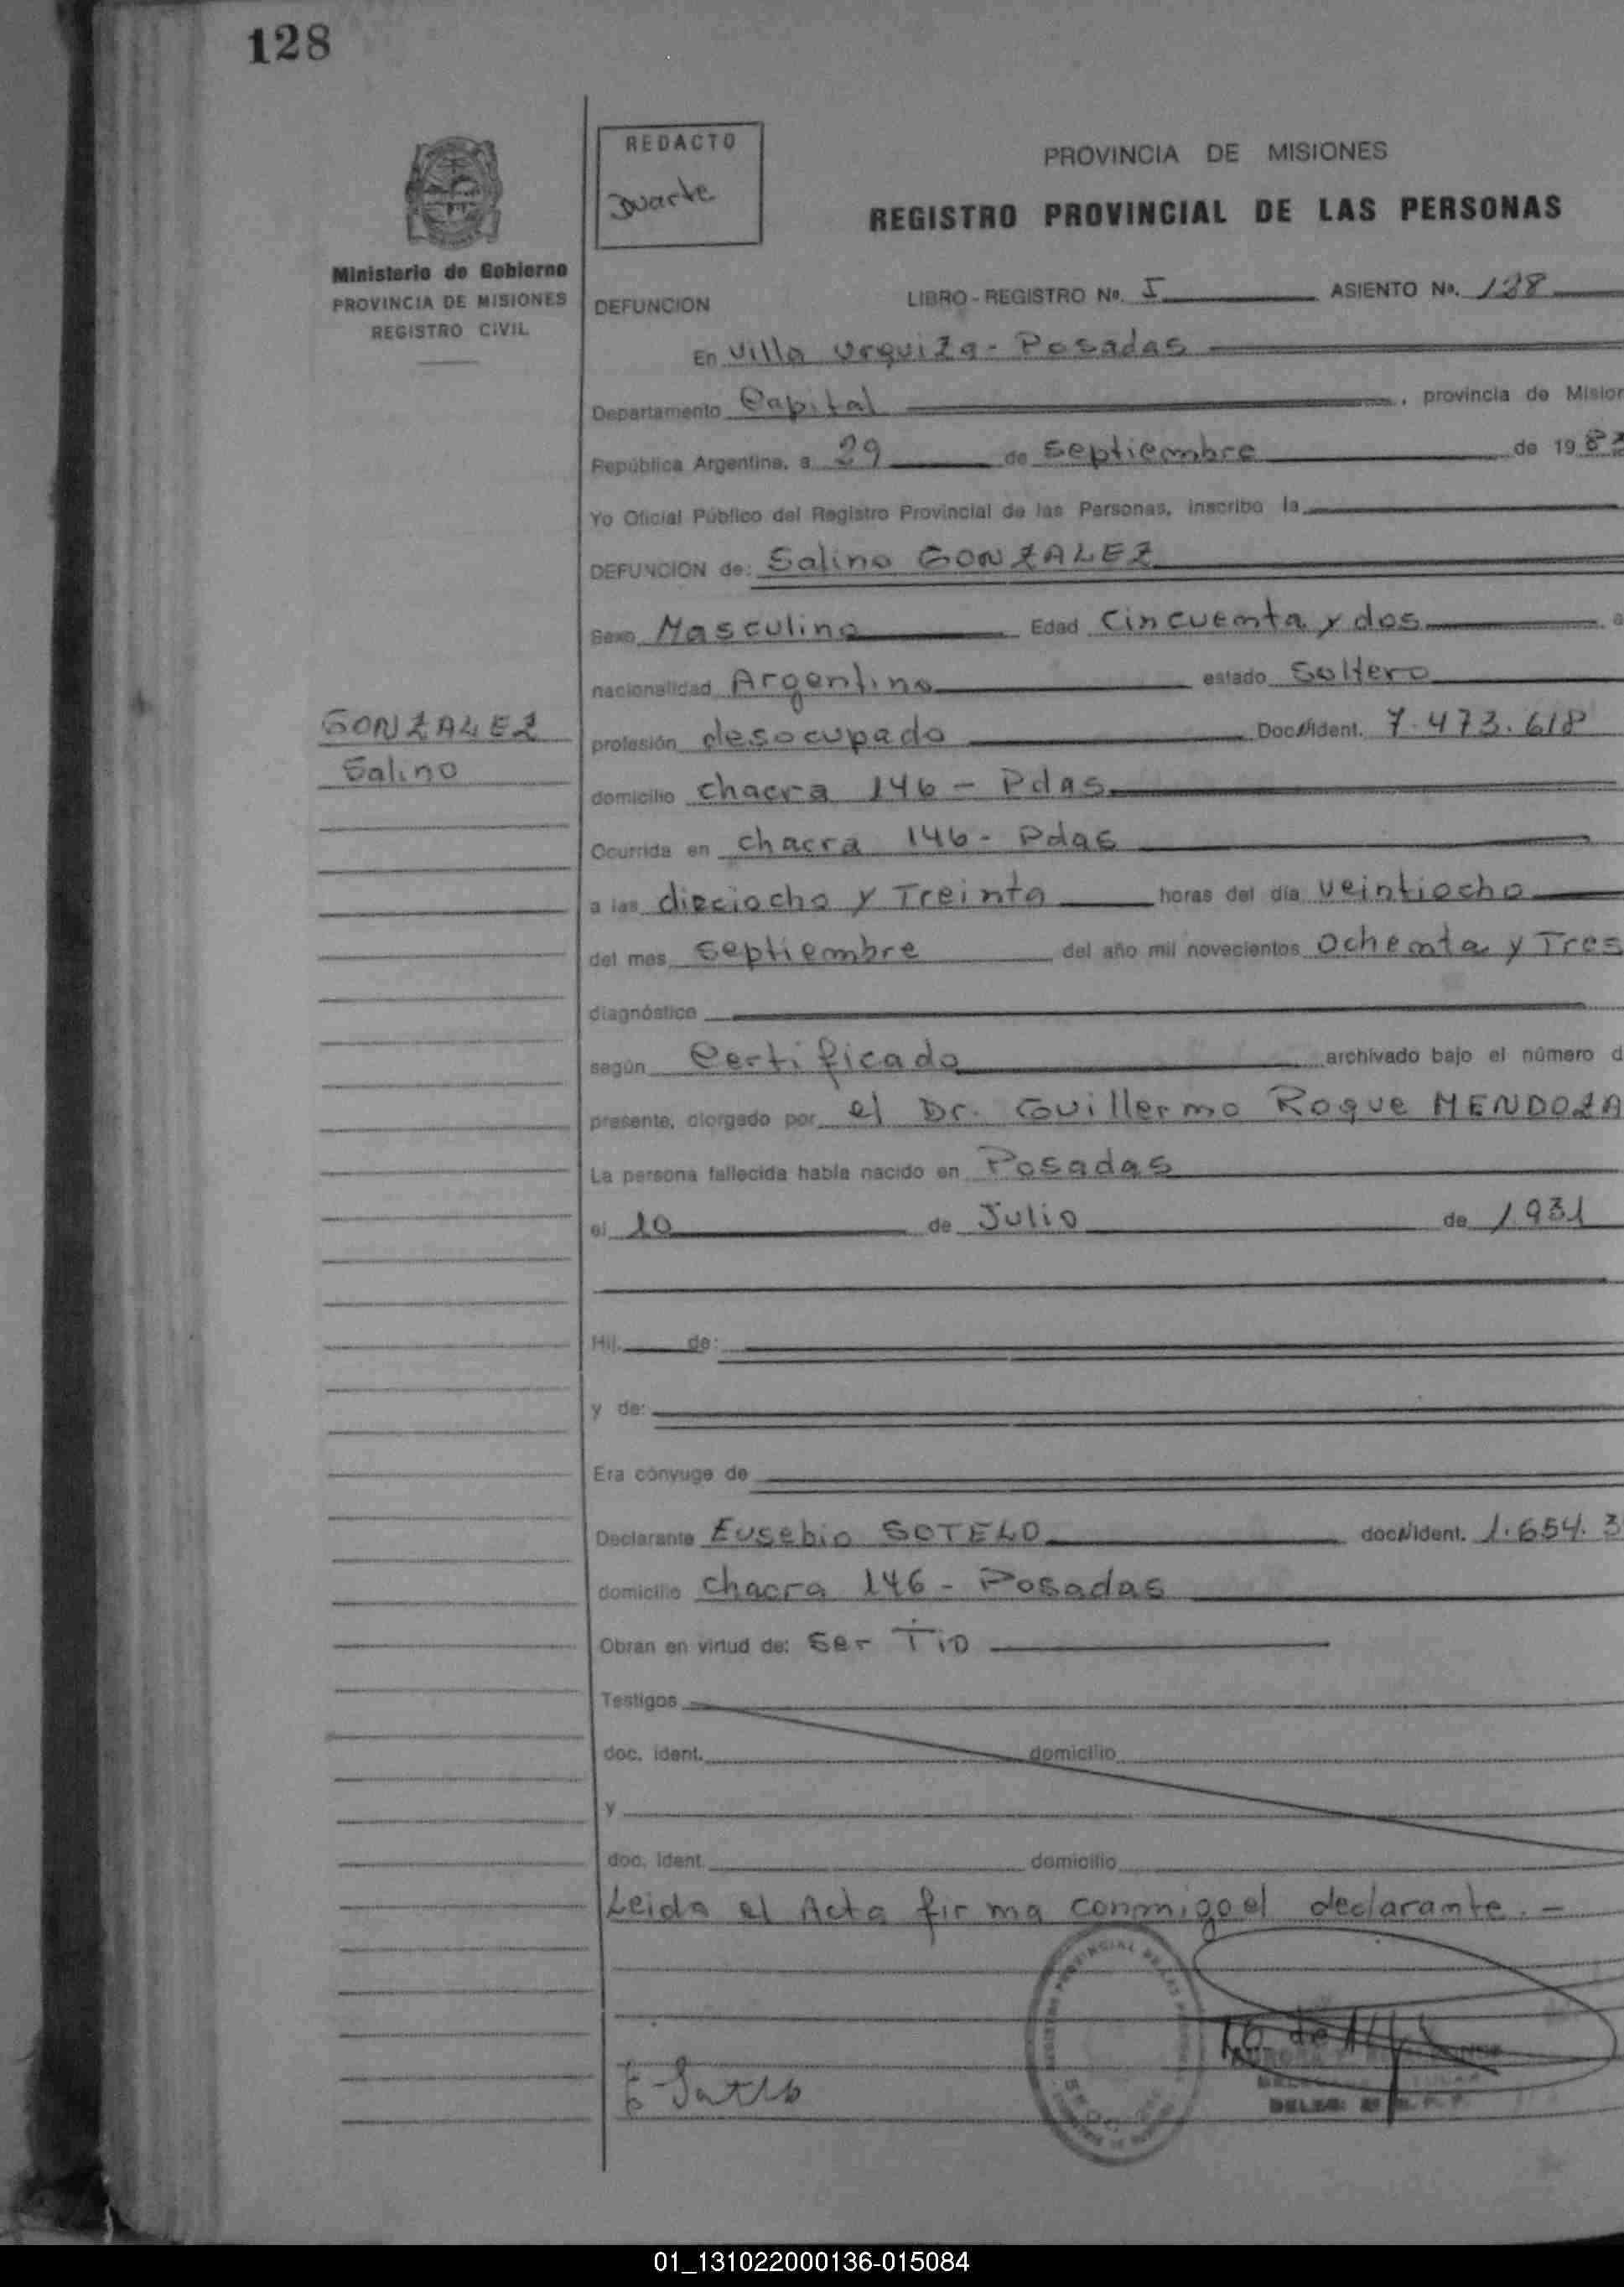 128
REDACTO
Duarte
PROVINCIA DE MISIONES
REGISTRO PROVINCIAL DE LAS PERSONAS
Ministerio de Gobierno
PROVINCIA DE MISIONES
REGISTRO CIVIL
DEFUNCION LIBRO - REGISTRO No. I ASIENTO No. 128
En Villa Urquiza - Posadas
Departamento Capital, provincia de Mision
República Argentina, a 29 de septiembre de 1983
Yo Oficial Público del Registro Provincial de las Personas, inscribo la
DEFUNCION de: Salino GONZALEZ
Sexo Masculino Edad Cincuenta y dos a
nacionalidad Argentino estado Soltero
GONZALEZ
Salino
profesión desocupado Doc. N ident. 7.473.618
domicilio chacra 146 - Pdas
Ocurrida en chacra 146 - Pdas
a las dieciocho y Treinta horas del día veintiocho
del mes septiembre del año mil novecientos Ochenta y Tres
diagnóstico
según Certificado archivado bajo el número d
presente, otorgado por el Dr. Guillermo Roque MENDOZA
La persona fallecida había nacido en Posadas
el 10 de Julio de 1.931
Hij de:
y de:
Era cónyuge de
Declarante Eusebio SOTELO doc. N ident. 1.654.3
domicilio chacra 146 - Posadas
Obran en virtud de: Ser Tio
Testigos
doc. ident. domicilio
y
doc. ident. domicilio
Leida el Acta firma conmigo el declarante. -
E Sotelo
01_131022000136-015084